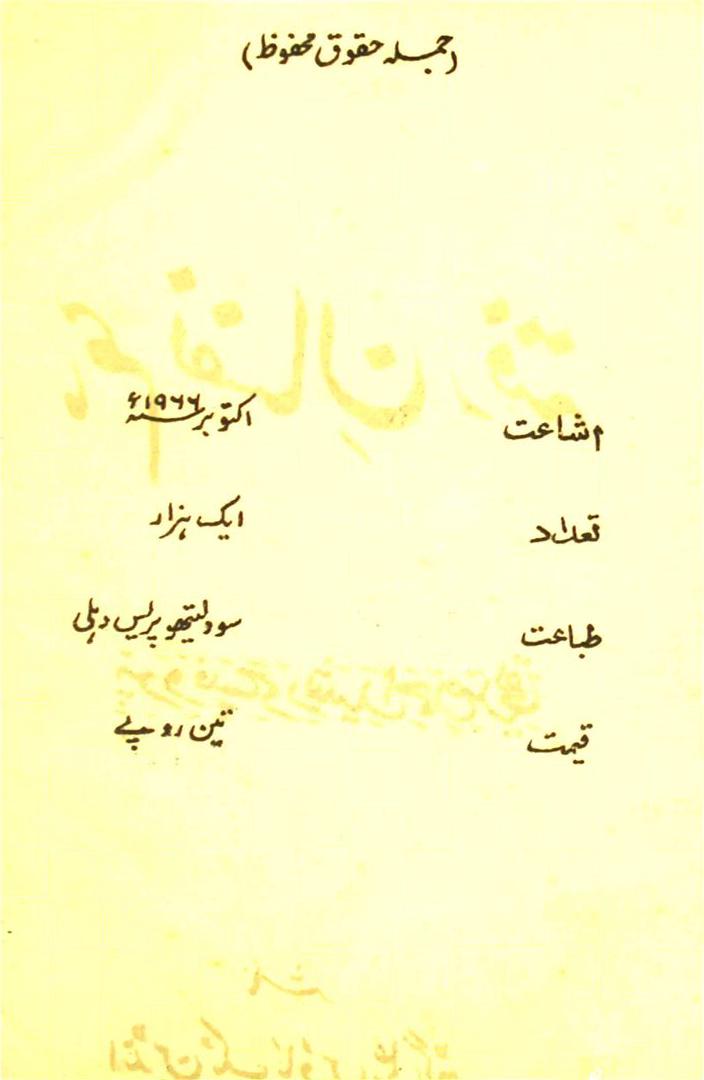 (جملہ حقوق محفوظ)
اشاعت اکتوبر ۱۹۶۶ء
تعداد ایک ہزار
طباعت سود لیتھو پریس دہلی
قیمت تین روپے